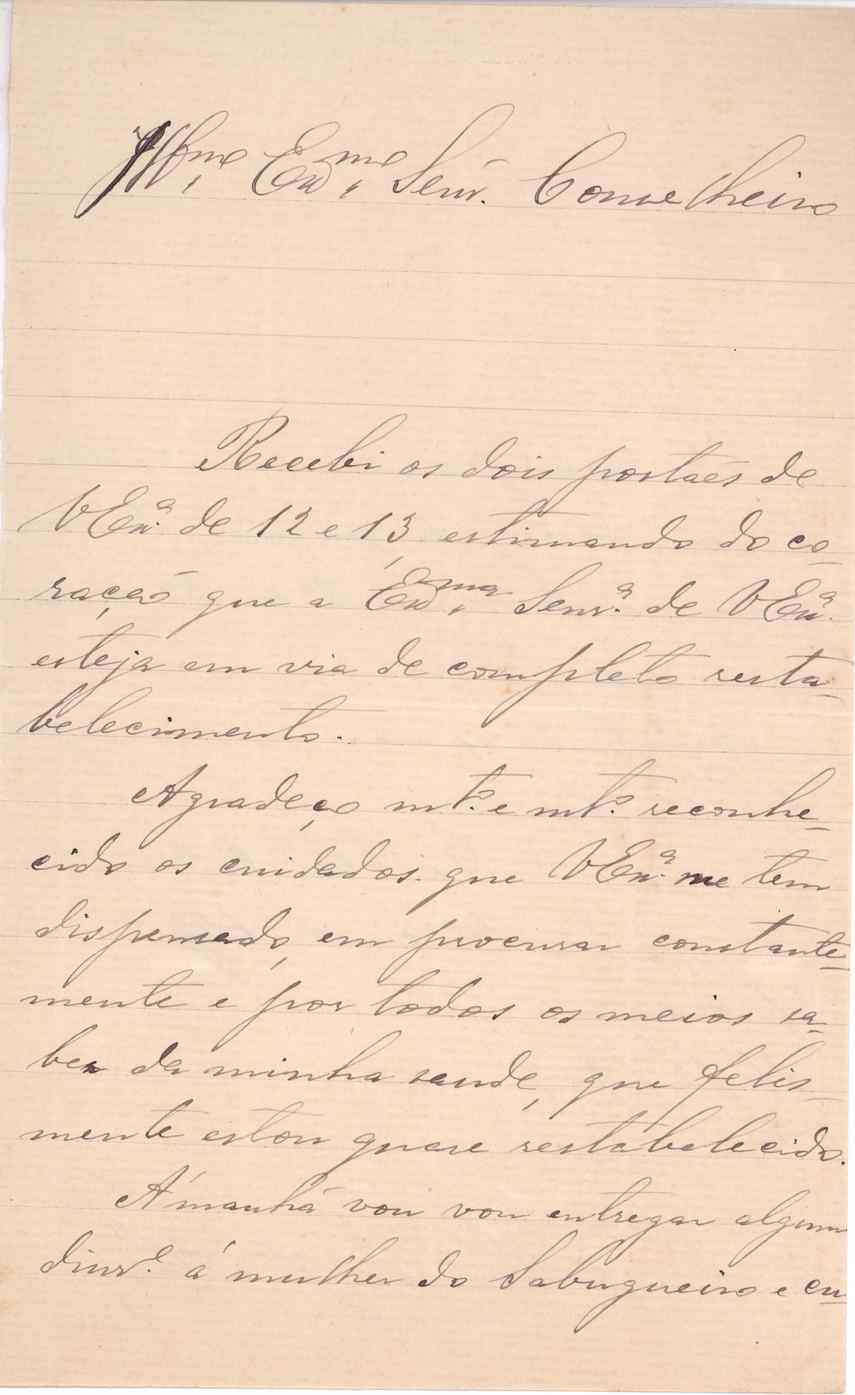 Illmº. Exmº. Senr. Conselheiro
Recebi os dois postaes de
V Exª. de 12 e 13, estimando do co-
ração que a Exma. Senrª. de V Exª.
esteja em via de completo resta-
belecimento.
Agradeço mtº. e mtº. reconhe-
cido os cuidados que V Exª. me tem
dispensado, em procurar constante-
mente e por todos os meios sa-
ber da minha saude, que felis-
mente estou quase restabelecido.
Á'manhã vou vou entregar algum
dinrº. á mulher do Sabugueiro e eu